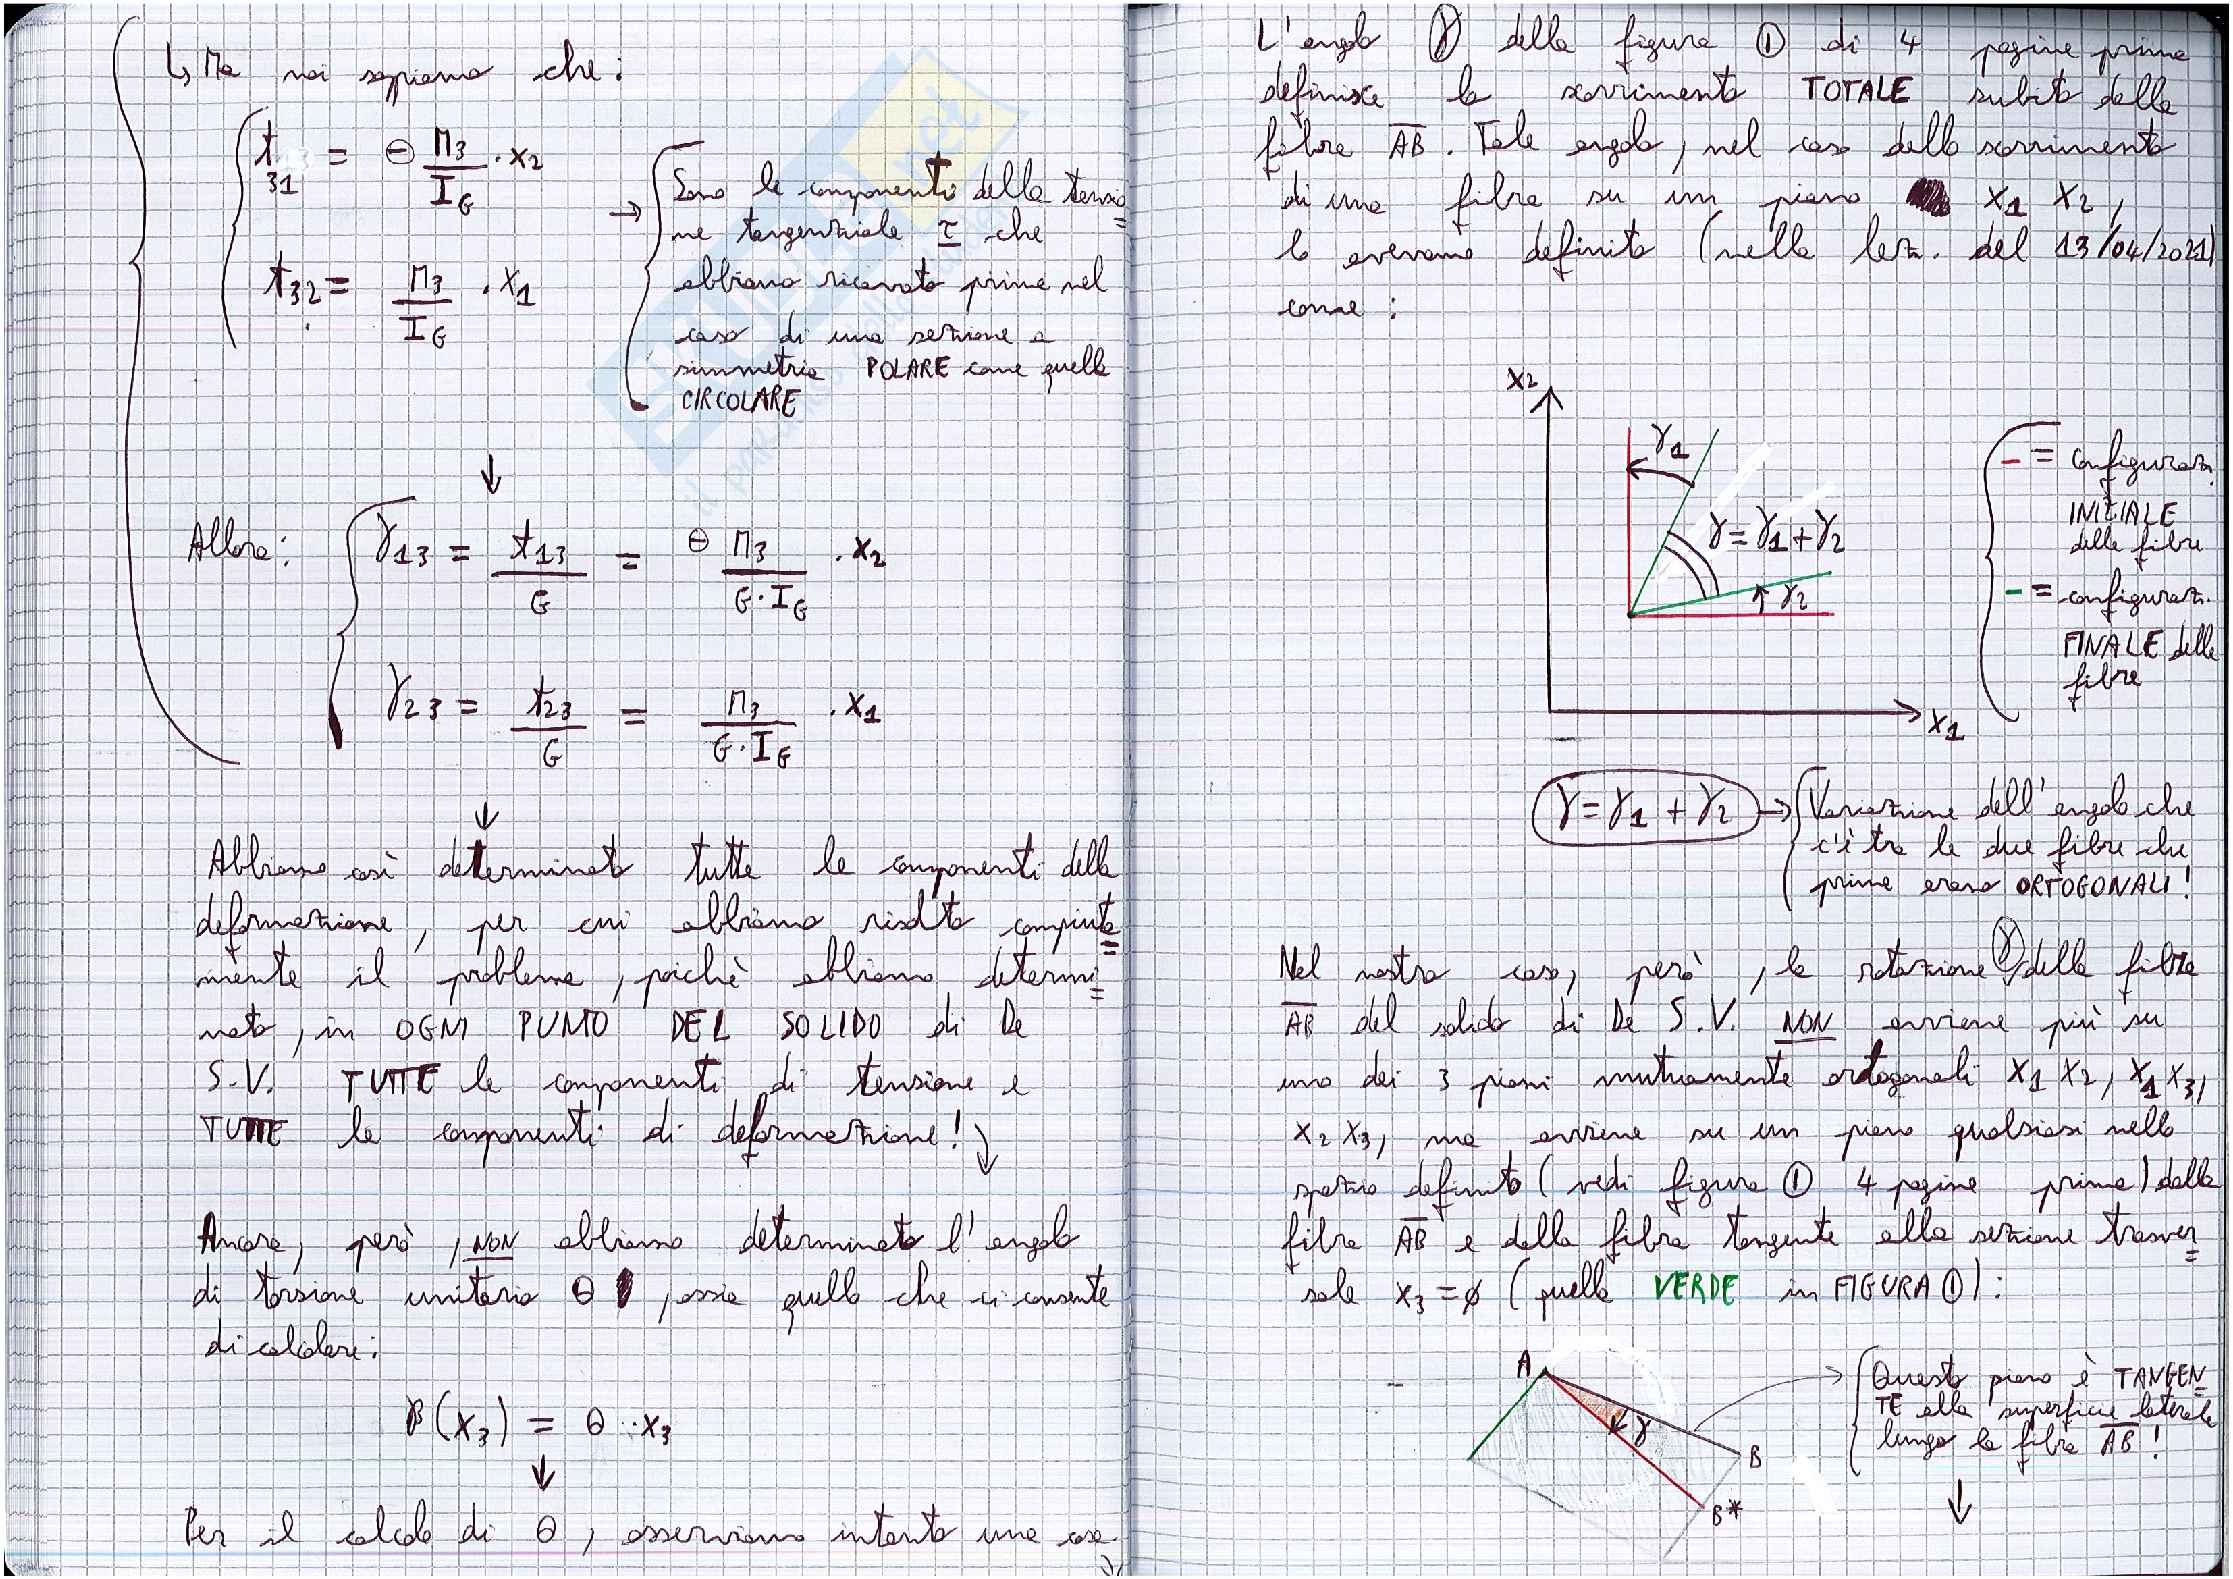 ↳ Ma noi sappiamo che:
t31 = ⊖ M3/IG · x2
t32 = M3/IG · x1
→ Sono le componenti della tensio=
ne tangenziale τ che
abbiamo ricavato prima nel
caso di una sezione a
simmetria POLARE come quella
CIRCOLARE
↓
Allora: γ13 = t13/G = ⊖ M3/(G·IG) · x2
γ23 = t23/G = M3/(G·IG) · x1
↓
Abbiamo così determinato tutte le componenti della
deformazione, per cui abbiamo risolto compiuta=
mente il problema, poichè abbiamo determi=
nato, in OGNI PUNTO DEL SOLIDO di De
S.V. TUTTE le componenti di tensione e
TUTTE le componenti di deformazione! ↓
Ancora, però, NON abbiamo determinato l'angolo
di torsione unitario θ, ossia quello che ci consente
di calcolare:
β(x3) = θ · x3
↓
Per il calcolo di θ, osserviamo intanto una cosa
L'angolo γ della figura ① di 4 pagine prima
definisce lo scorrimento TOTALE subito dalla
fibra AB. Tale angolo, nel caso dello scorrimento
di una fibra su un piano x1 x2,
lo avevamo definito (nella lez. del 13/04/2021)
come:
x2
γ1
γ=γ1+γ2
γ2
x1
- = configuraz.
INIZIALE
delle fibre
- = configuraz.
FINALE delle
fibre
γ=γ1+γ2 → Variazione dell'angolo che
c'è tra le due fibre che
prima erano ORTOGONALI!
Nel nostro caso, però, la rotazione γ della fibra
AB del solido di De S.V. NON avviene più su
uno dei 3 piani mutuamente ortogonali x1 x2, x1 x3,
x2 x3, ma avviene su un piano qualsiasi nello
spazio definito (vedi figura ① 4 pagine prima) dalla
fibra AB e dalla fibra tangente alla sezione trasver=
sale x3=∅ (quella VERDE in FIGURA ①):
A
γ
B
B*
Questo piano è TANGEN=
TE alla superficie laterale
lungo la fibra AB!
↓